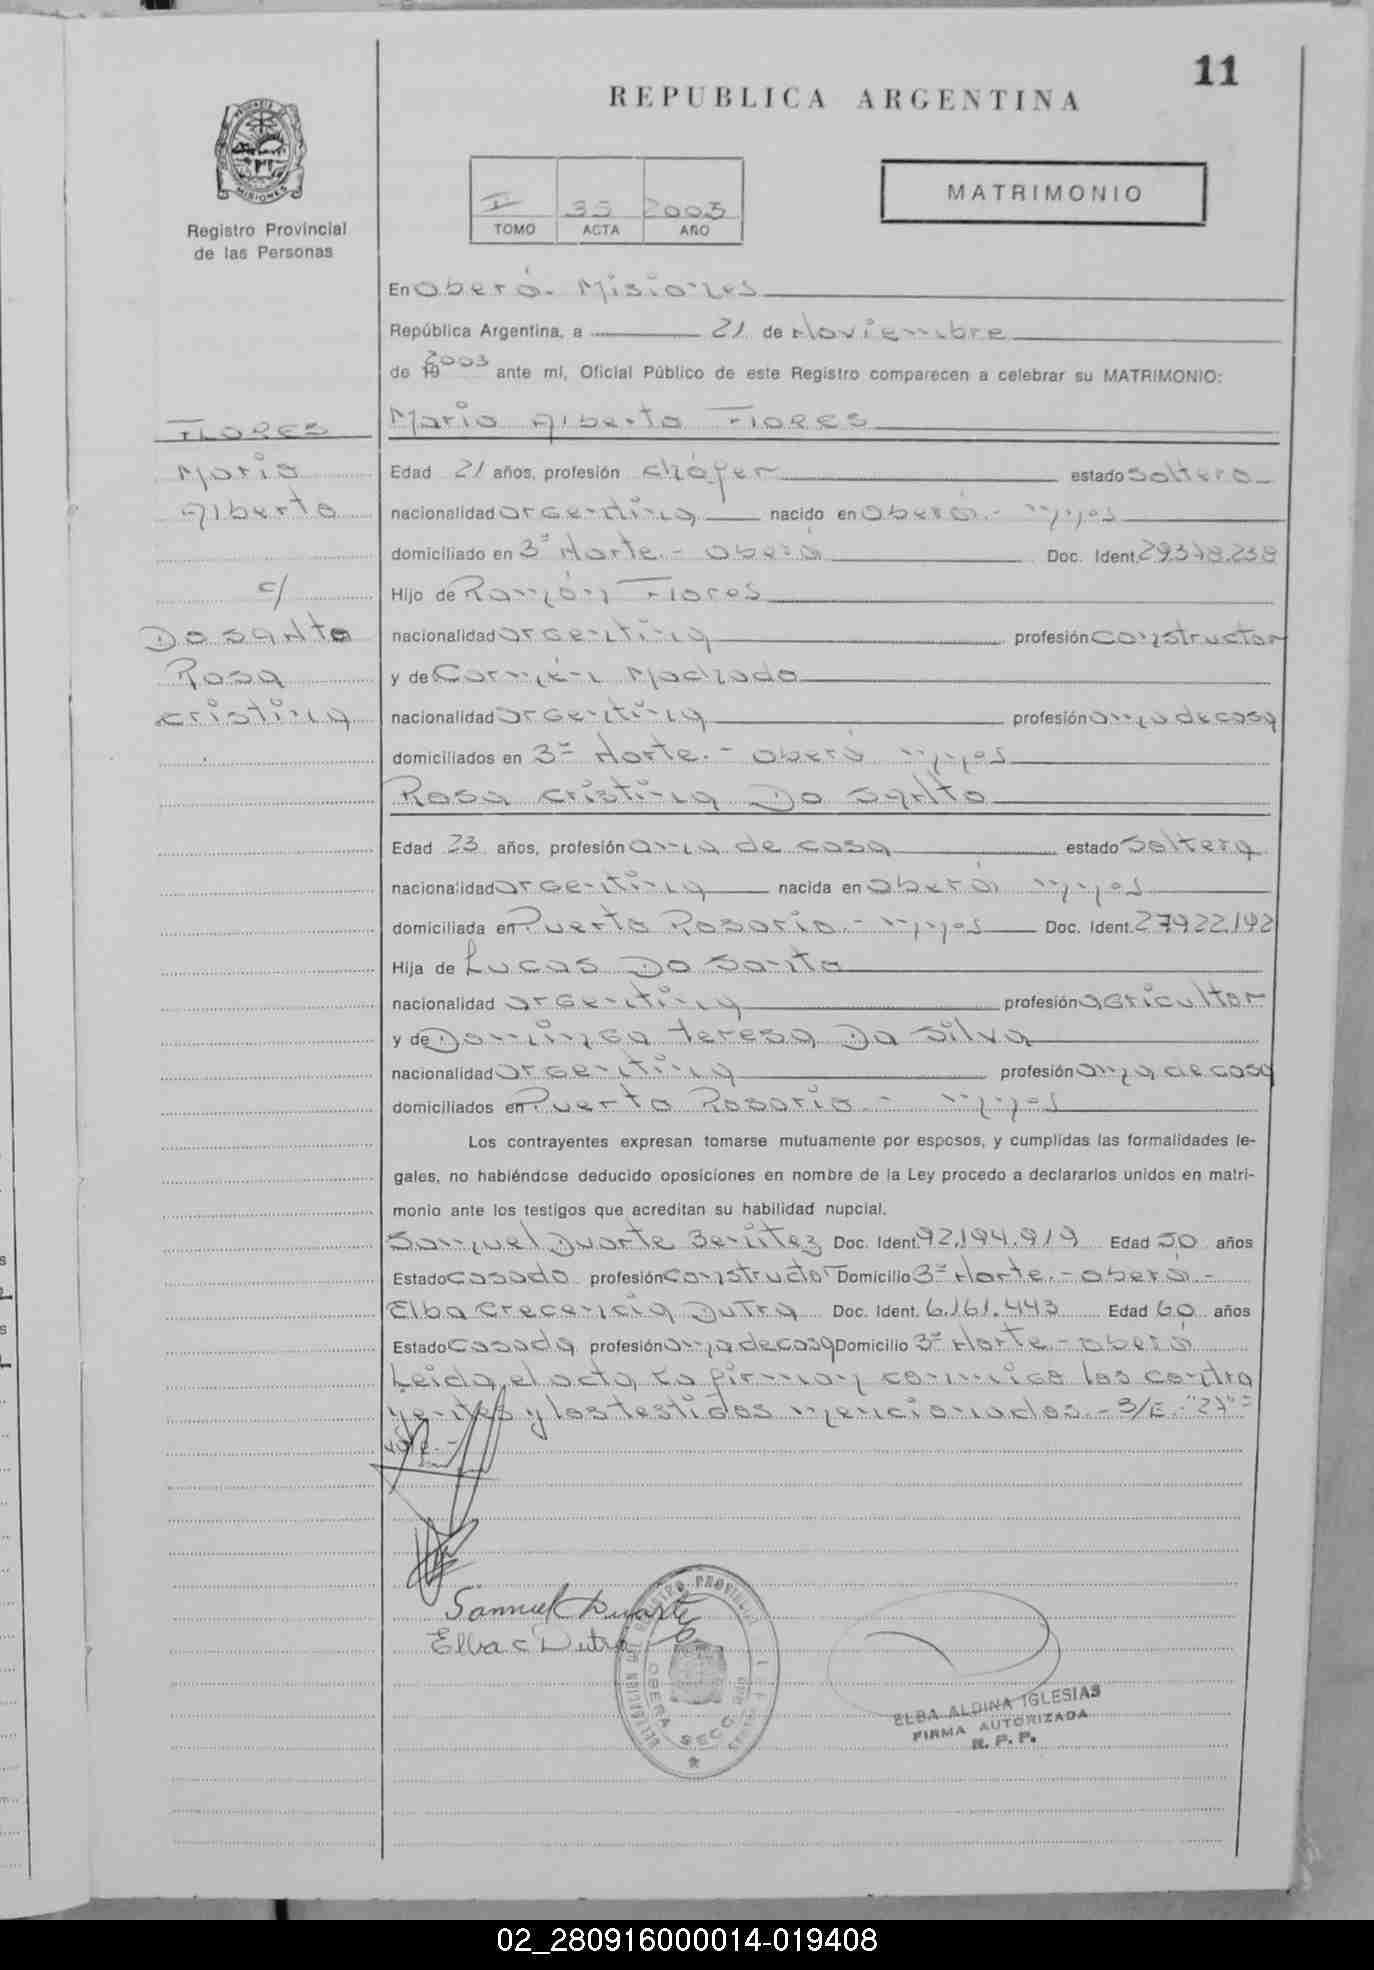 11
REPUBLICA ARGENTINA
PROVINCIA
MISIONES
Registro Provincial
de las Personas
II 35 2003
TOMO ACTA AÑO
MATRIMONIO
En Oberá. Misiones
República Argentina, a 21 de Noviembre
de 19 2003 ante mí, Oficial Público de este Registro comparecen a celebrar su MATRIMONIO:
FLORES
Mario
Alberto
c/
Do Santo
Rosa
Cristina
Mario Alberto Flores
Edad 21 años, profesión cháfer estado soltero
nacionalidad argentina nacido en Oberá.-
domiciliado en 3ª Norte.- Oberá Doc. Ident. 29.318.238
Hijo de Ramón Flores
nacionalidad argentina profesión constructor
y de Carmen Machado
nacionalidad argentina profesión ama de casa
domiciliados en 3ª Norte.- Oberá
Rosa Cristina Do Santo
Edad 23 años, profesión ama de casa estado soltera
nacionalidad argentina nacida en Oberá
domiciliada en Puerto Rosario.- Doc. Ident. 27922.192
Hija de Lucas Do Santo
nacionalidad argentina profesión agricultor
y de Dominga Teresa Da Silva
nacionalidad argentina profesión ama de casa
domiciliados en Puerto Rosario.-
Los contrayentes expresan tomarse mutuamente por esposos, y cumplidas las formalidades le-
gales, no habiéndose deducido oposiciones en nombre de la Ley procedo a declararlos unidos en matri-
monio ante los testigos que acreditan su habilidad nupcial.
Samuel Duarte Benitez Doc. Ident. 92.194.919 Edad 50 años
Estado casado profesión constructor Domicilio 3ª Norte.- Oberá -
Elba Crecencia Dutra Doc. Ident. 6.161.443 Edad 60 años
Estado casada profesión ama de casa Domicilio 3ª Norte - Oberá
Leida el acta, la firman conmigo los contra
yentes y los testigos mencionados.- S/E.- "27"-
Vale.-
Samuel Duarte
Elba C Dutra
DELEGACION DEL REGISTRO PROVINCIAL
OBERA
SECC.
ELBA ALDINA IGLESIAS
FIRMA AUTORIZADA
R. P. P.
02_280916000014-019408